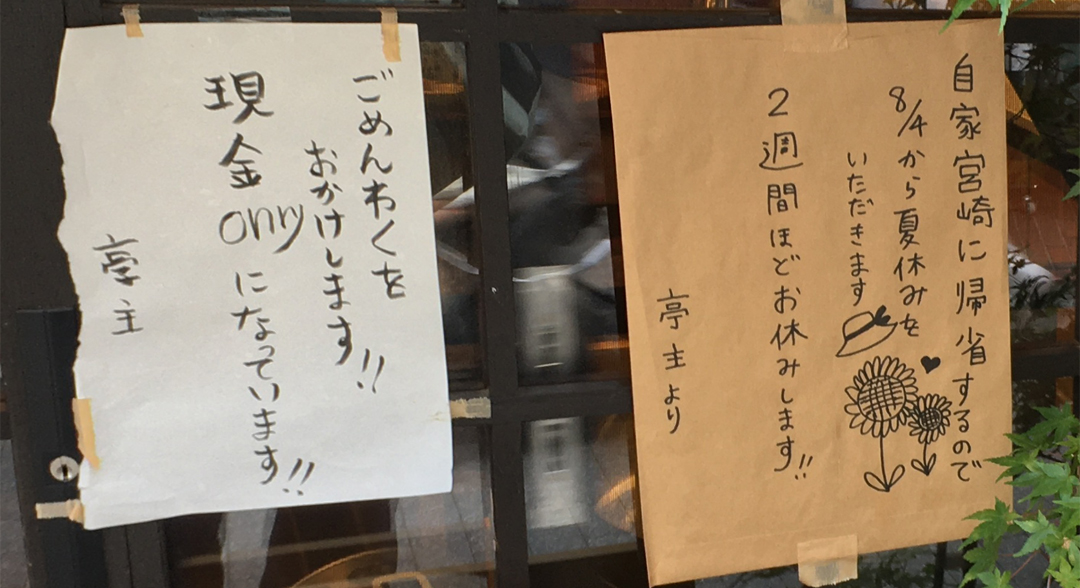 自家宮崎に帰省するので
8/4から夏休みを
いただきます
2週間ほどお休みします!!
亭主より
ごめんわくを
おかけします!!
現金onryになっています!!
亭主